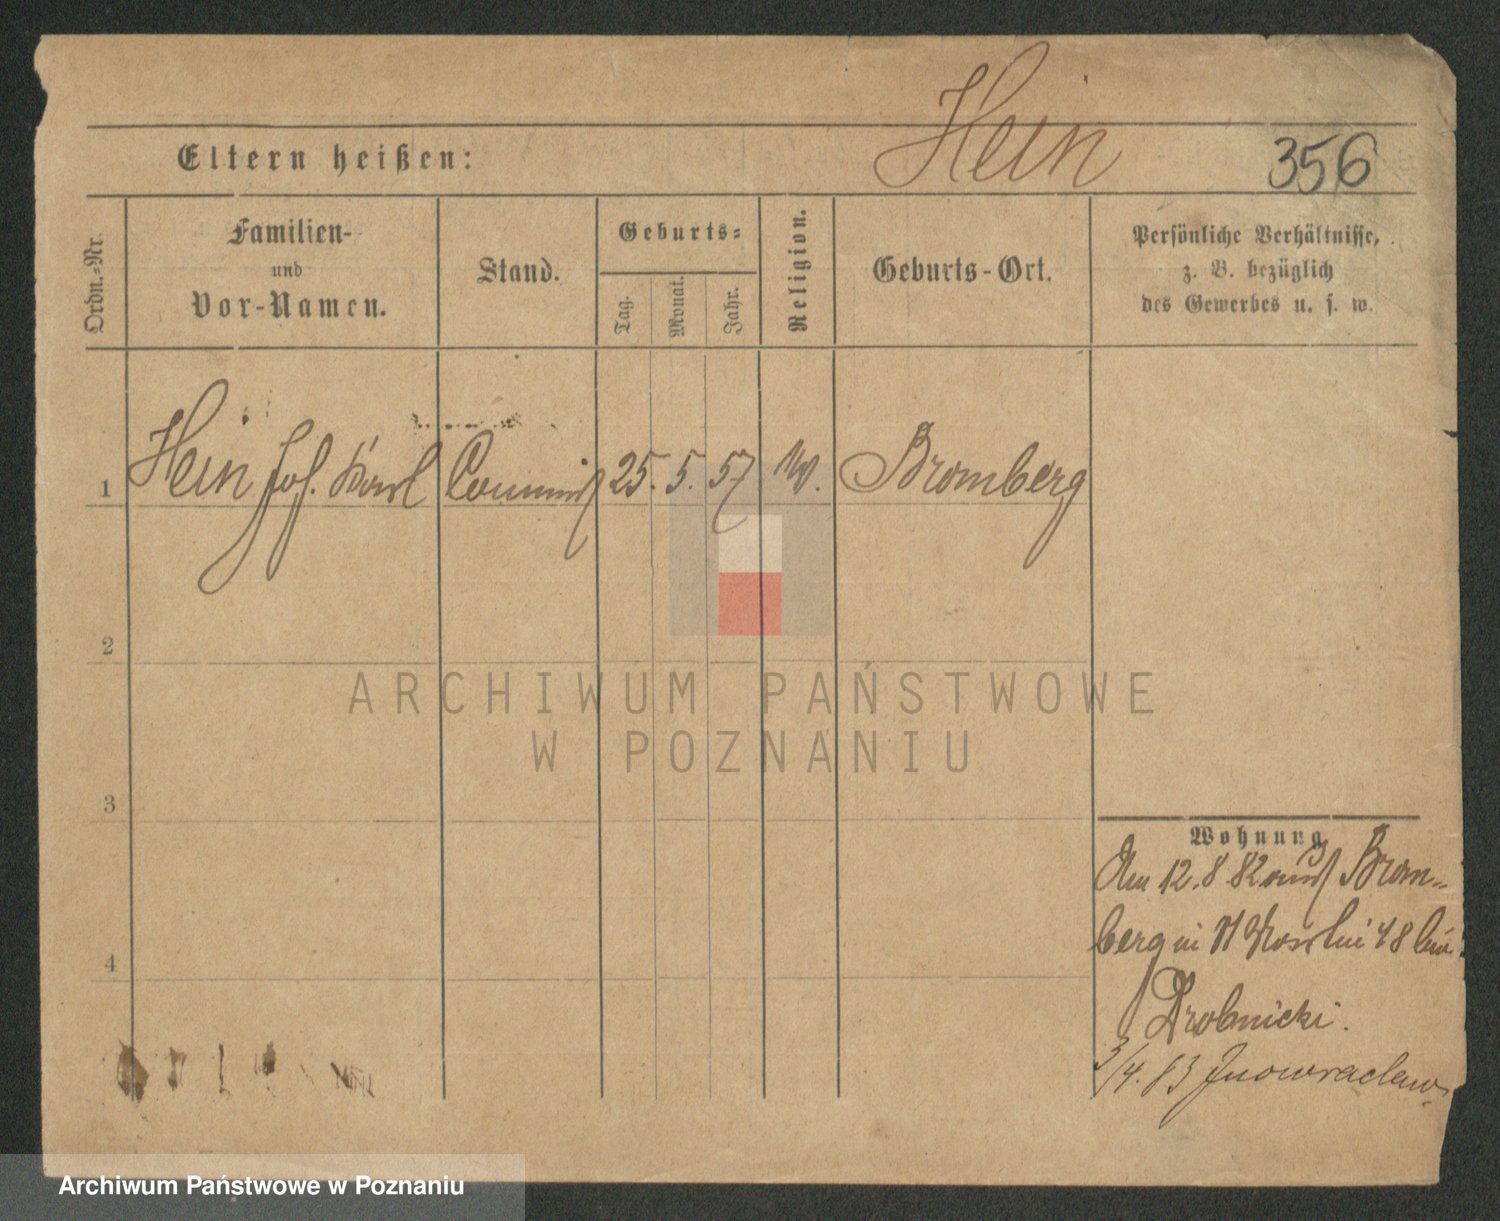 Hein
356
Eltern heißen:
Ordn.-Nr.
Familien-
und
Vor-Namen.
Stand.
Geburts-
Tag.
Monat.
Jahr.
Religion.
Geburts-Ort.
Persönliche Verhältnisse,
z. B. bezüglich
des Gewerbes u. s. w.
1 Hein Joh. Karl Commis 25. 5. 57 Bromberg
2
3
4
Wohnung
Am 12.8 82 aus Brom-
berg in 48 bei
Drobnicki.
3/4. 83 Inowraclaw
ARCHIWUM PAŃSTWOWE
W POZNANIU
Archiwum Państwowe w Poznaniu